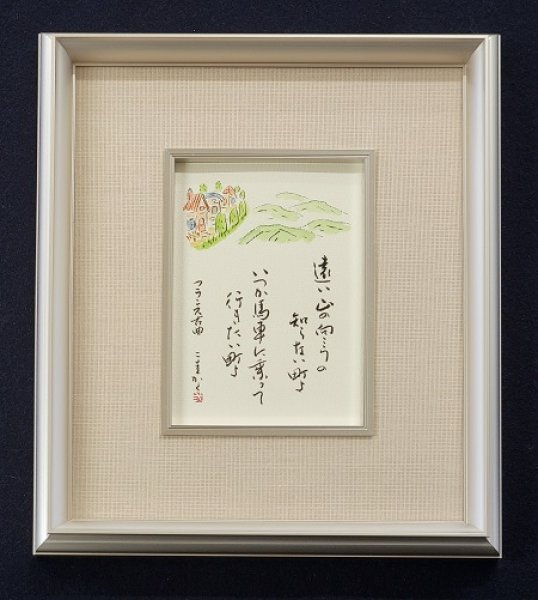 遠い山の向うの
知らない町よ
いつか馬車に乗って
行きたい町よ
フランス古曲 こまかく